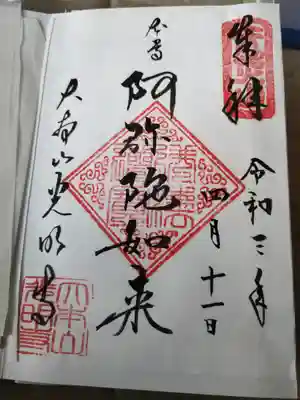 奉拝
令和三年
四月十一日
本尊
阿弥陀如来
大南山光明寺